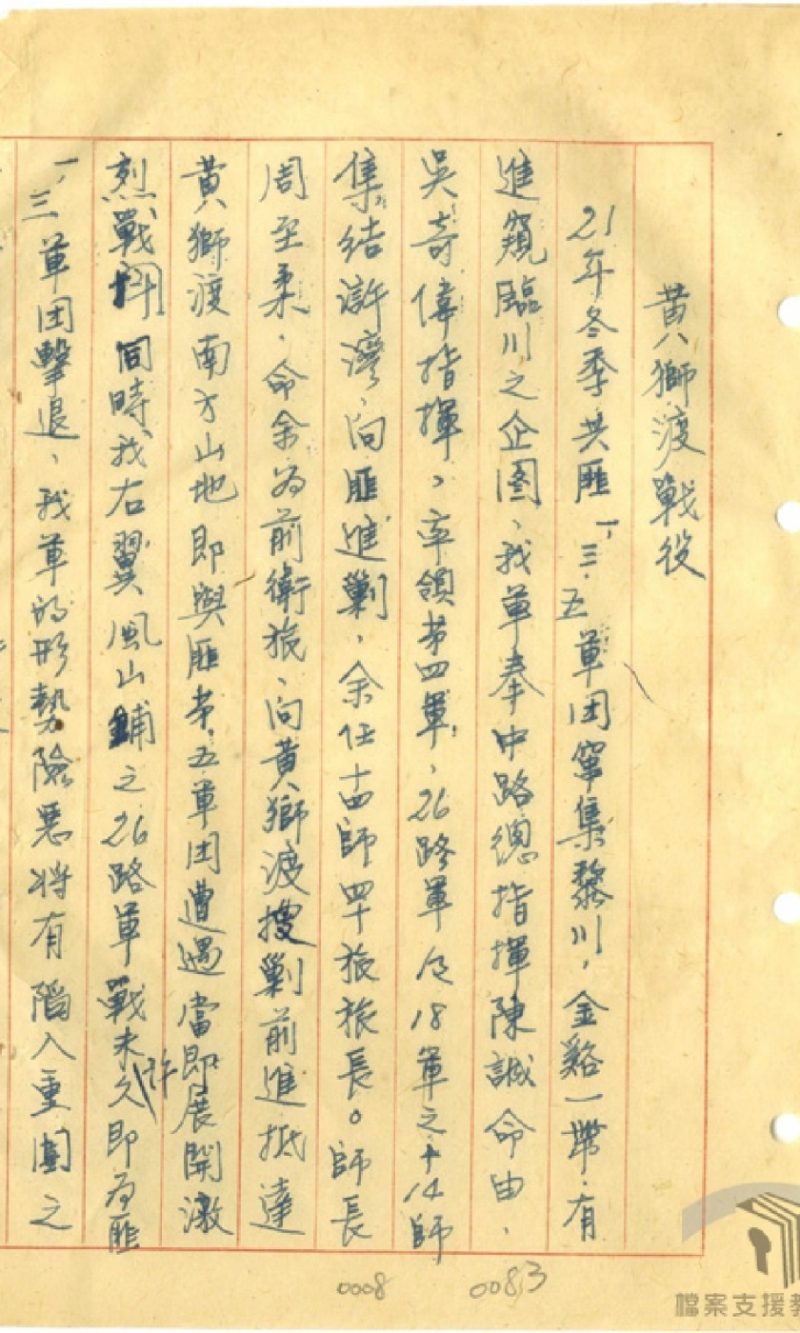 黃獅渡戰役
21年冬季共匪一、三、五軍团窜集黎川，金谿一帶．有
進窺臨川之企图、我軍奉中路總指揮陳誠命由、
吳奇偉指揮，率領第四軍、26路軍及18軍之十14師
集结滸湾、向匪進剿，余任十四師四十旅旅長。師長
周至柔．命余为前衛旅、向黃獅渡搜剿前進抵達
黃獅渡南方山地即與匪第五軍团遭遇當即展開激
烈戰鬥同時我右翼風山鋪之26路軍戰未久許即為匪
一、三軍团擊退、我軍的形勢險惡将有陷入重圍之
0008 0083
檔案支援教